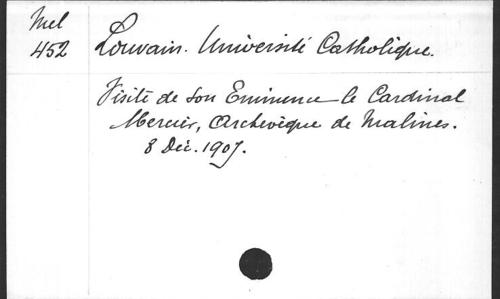 Mel
452
Louvain. Université Catholique.
Visite de Son Eminence le Cardinal
Mercier, Archevèque de Malines.
8 Déc. 1907.